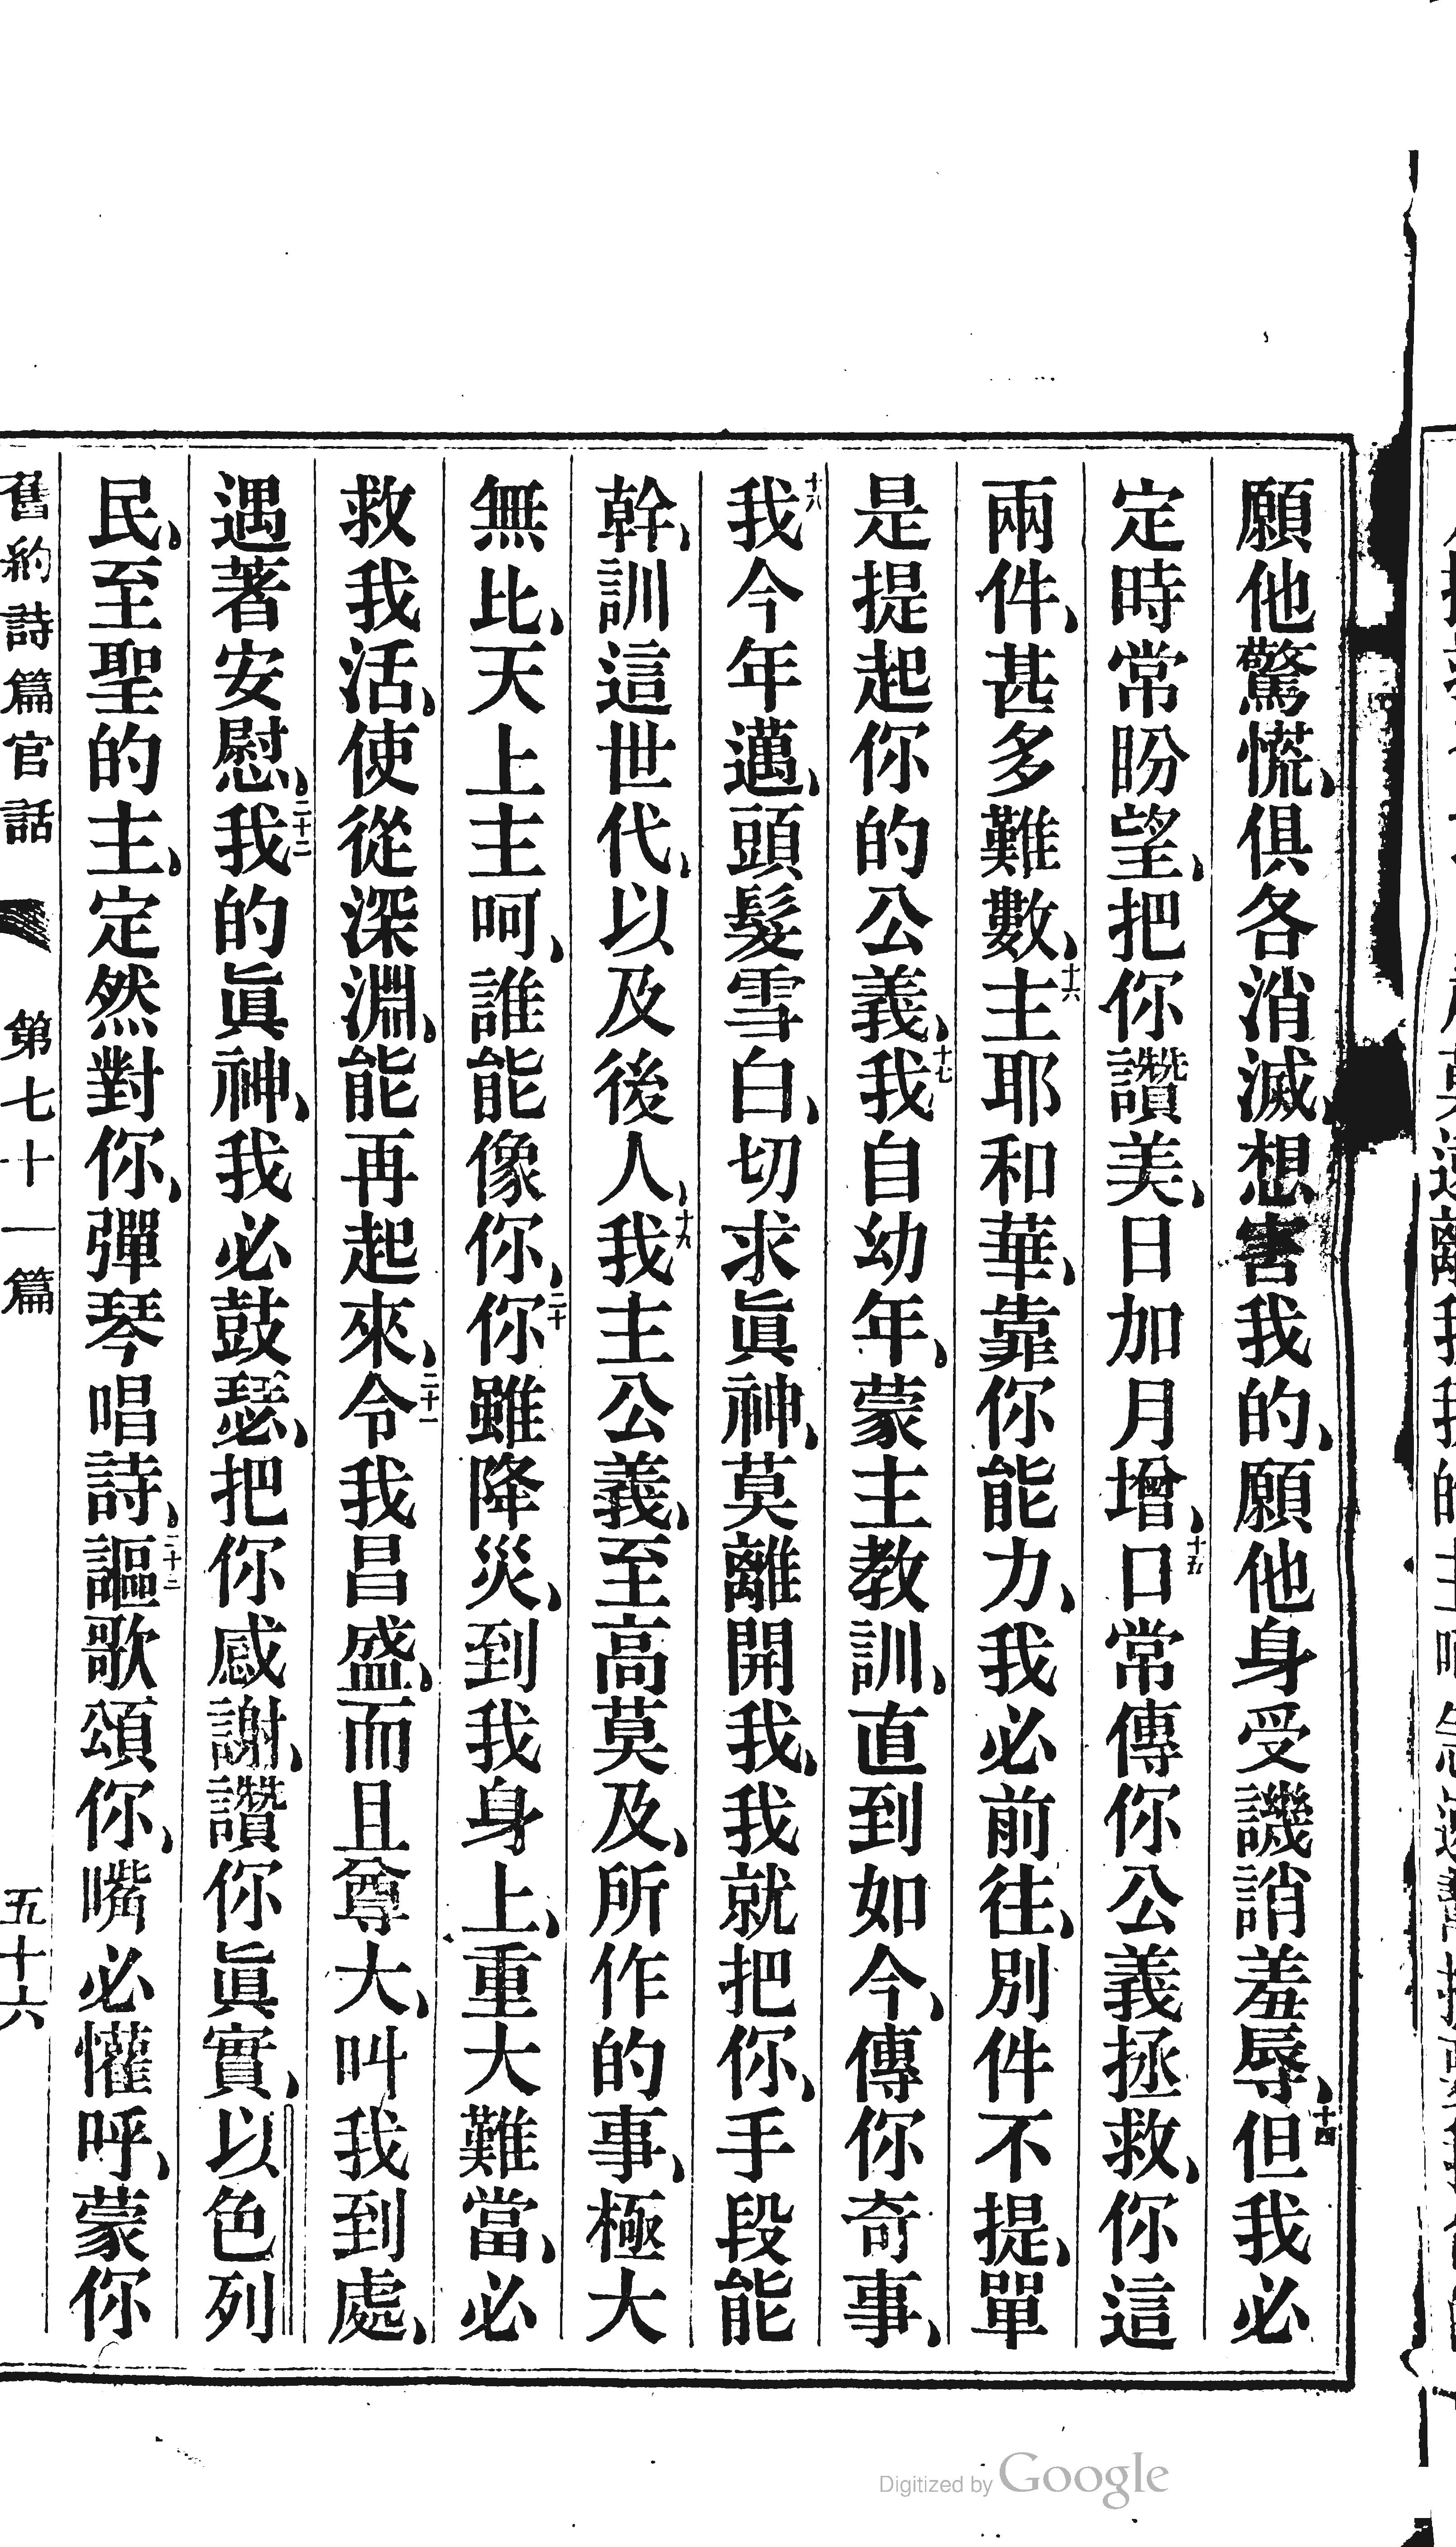 願他驚慌、俱各消滅、想害我的、願他身受譏誚羞辱、十四但我必
定時常盼望、把你讚美、日加月增、十五口常傳你公義拯救、你這
兩件、甚多難數、十六主耶和華、靠你能力、我必前往、別件不提、單
是提起你的公義、十七我自幼年、蒙主教訓、直到如今、傳你奇事、
十八我今年邁、頭髮雪白、切求眞神、莫離開我、我就把你、手段能
幹、訓這世代、以及後人、十九我主公義、至高莫及、所作的事、極大
無比、天上主呵、誰能像你、二十你雖降災、到我身上、重大難當、必
救我活、使從深淵、能再起來、二十一令我昌盛、而且尊大、叫我到處、
遇著安慰、二十二我的眞神、我必鼓瑟、把你感謝、讚你眞實、以色列
民、至聖的主、定然對你、彈琴唱詩、二十三謳歌頌你、嘴必懽呼、蒙你
舊約詩篇官話 第七十一篇 五十六
Digitized by Google